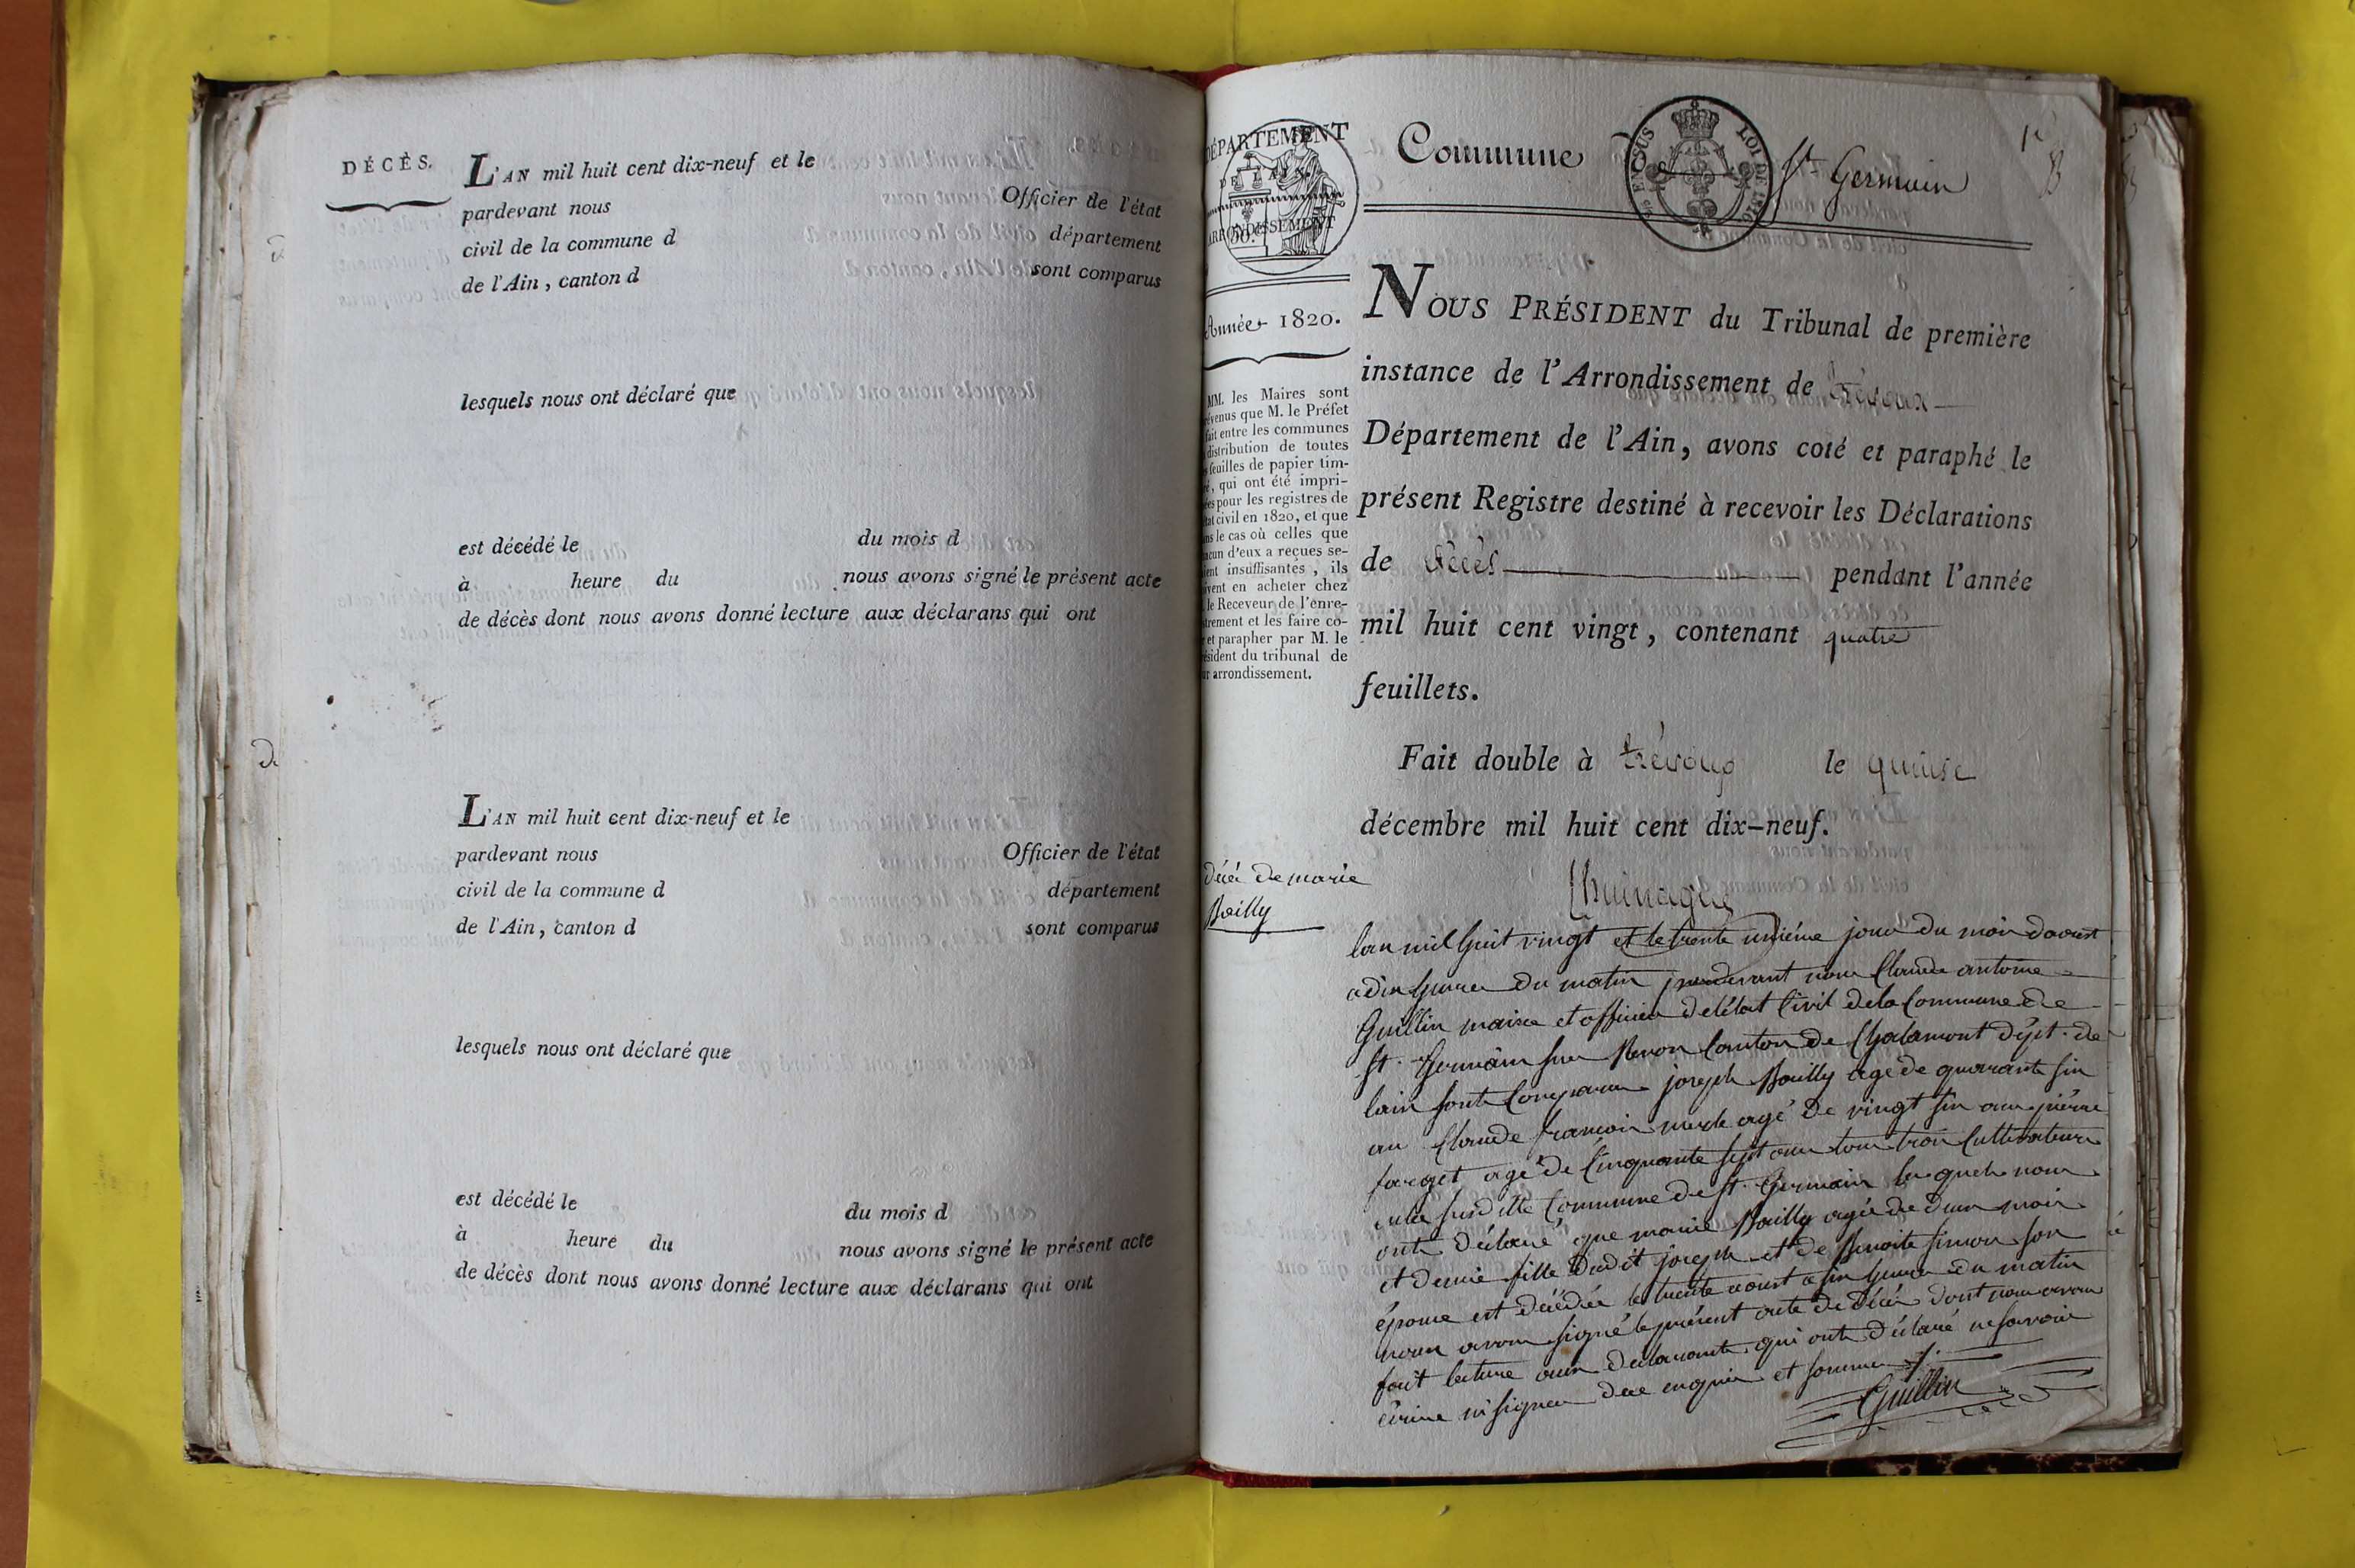 DÉCÈS.
L'AN mil huit cent dix-neuf et le
pardevant nous Officier de l'état
civil de la commune d département
de l'Ain, canton d sont comparus
lesquels nous ont déclaré que
est décédé le du mois d
à heure du nous avons signé le présent acte
de décès dont nous avons donné lecture aux déclarans qui ont
L'AN mil huit cent dix-neuf et le
pardevant nous Officier de l'état
civil de la commune d département
de l'Ain, canton d sont comparus
lesquels nous ont déclaré que
est décédé le du mois d
à heure du nous avons signé le présent acte
de décès dont nous avons donné lecture aux déclarans qui ont
DÉPARTEMENT
DE L'AIN.
ARRONDISSEMENT
Année 1820.
MM. les Maires sont
évenus que M. le Préfet
fait entre les communes
distribution de toutes
s feuilles de papier tim-
ré, qui ont été impri-
ées pour les registres de
état civil en 1820, et que
ans le cas où celles que
acun d'eux a reçues se-
ient insuffisantes, ils
ivent en acheter chez
le Receveur de l'enre-
strement et les faire co-
r et parapher par M. le
résident du tribunal de
ur arrondissement.
Commune de St. Germain
LOI DE 1816
NOUS PRÉSIDENT du Tribunal de première
instance de l'Arrondissement de trévoux
Département de l'Ain, avons coté et paraphé le
présent Registre destiné à recevoir les Déclarations
de décès pendant l'année
mil huit cent vingt, contenant quatre
feuillets.
Fait double à trévoux le quinse
décembre mil huit cent dix-neuf.
décé de marie
Boilly
lan mil huit vingt et le trente unième jour du mois daoust
a dix heures du matin pardevant nous Claude antoine
Guillin maire et officier de létat Civil dela Commune de
St. Germain sur Renon Canton de Chalamont dépt. de
lain sont Comparus joseph Boilly agé de quarante sin
an Claude francois merle agé de vingt sin ans pierre
farget agé de Cinquante sept ans tous trois Cultivateurs
en la susditte Commune de St. Germain lesquels nous
ont déclaré que marie Boilly agée de deux mois
et demie fille dudit joseph et de Benoite simon son
épouse est décédée le trente aoust a sin heures du matin
nous avons signé le présent acte de décés dont nous avons
fait lecture aux déclarants qui ont déclaré ne savoir
écrire ni signer de ce enquis et sommés
Guillin